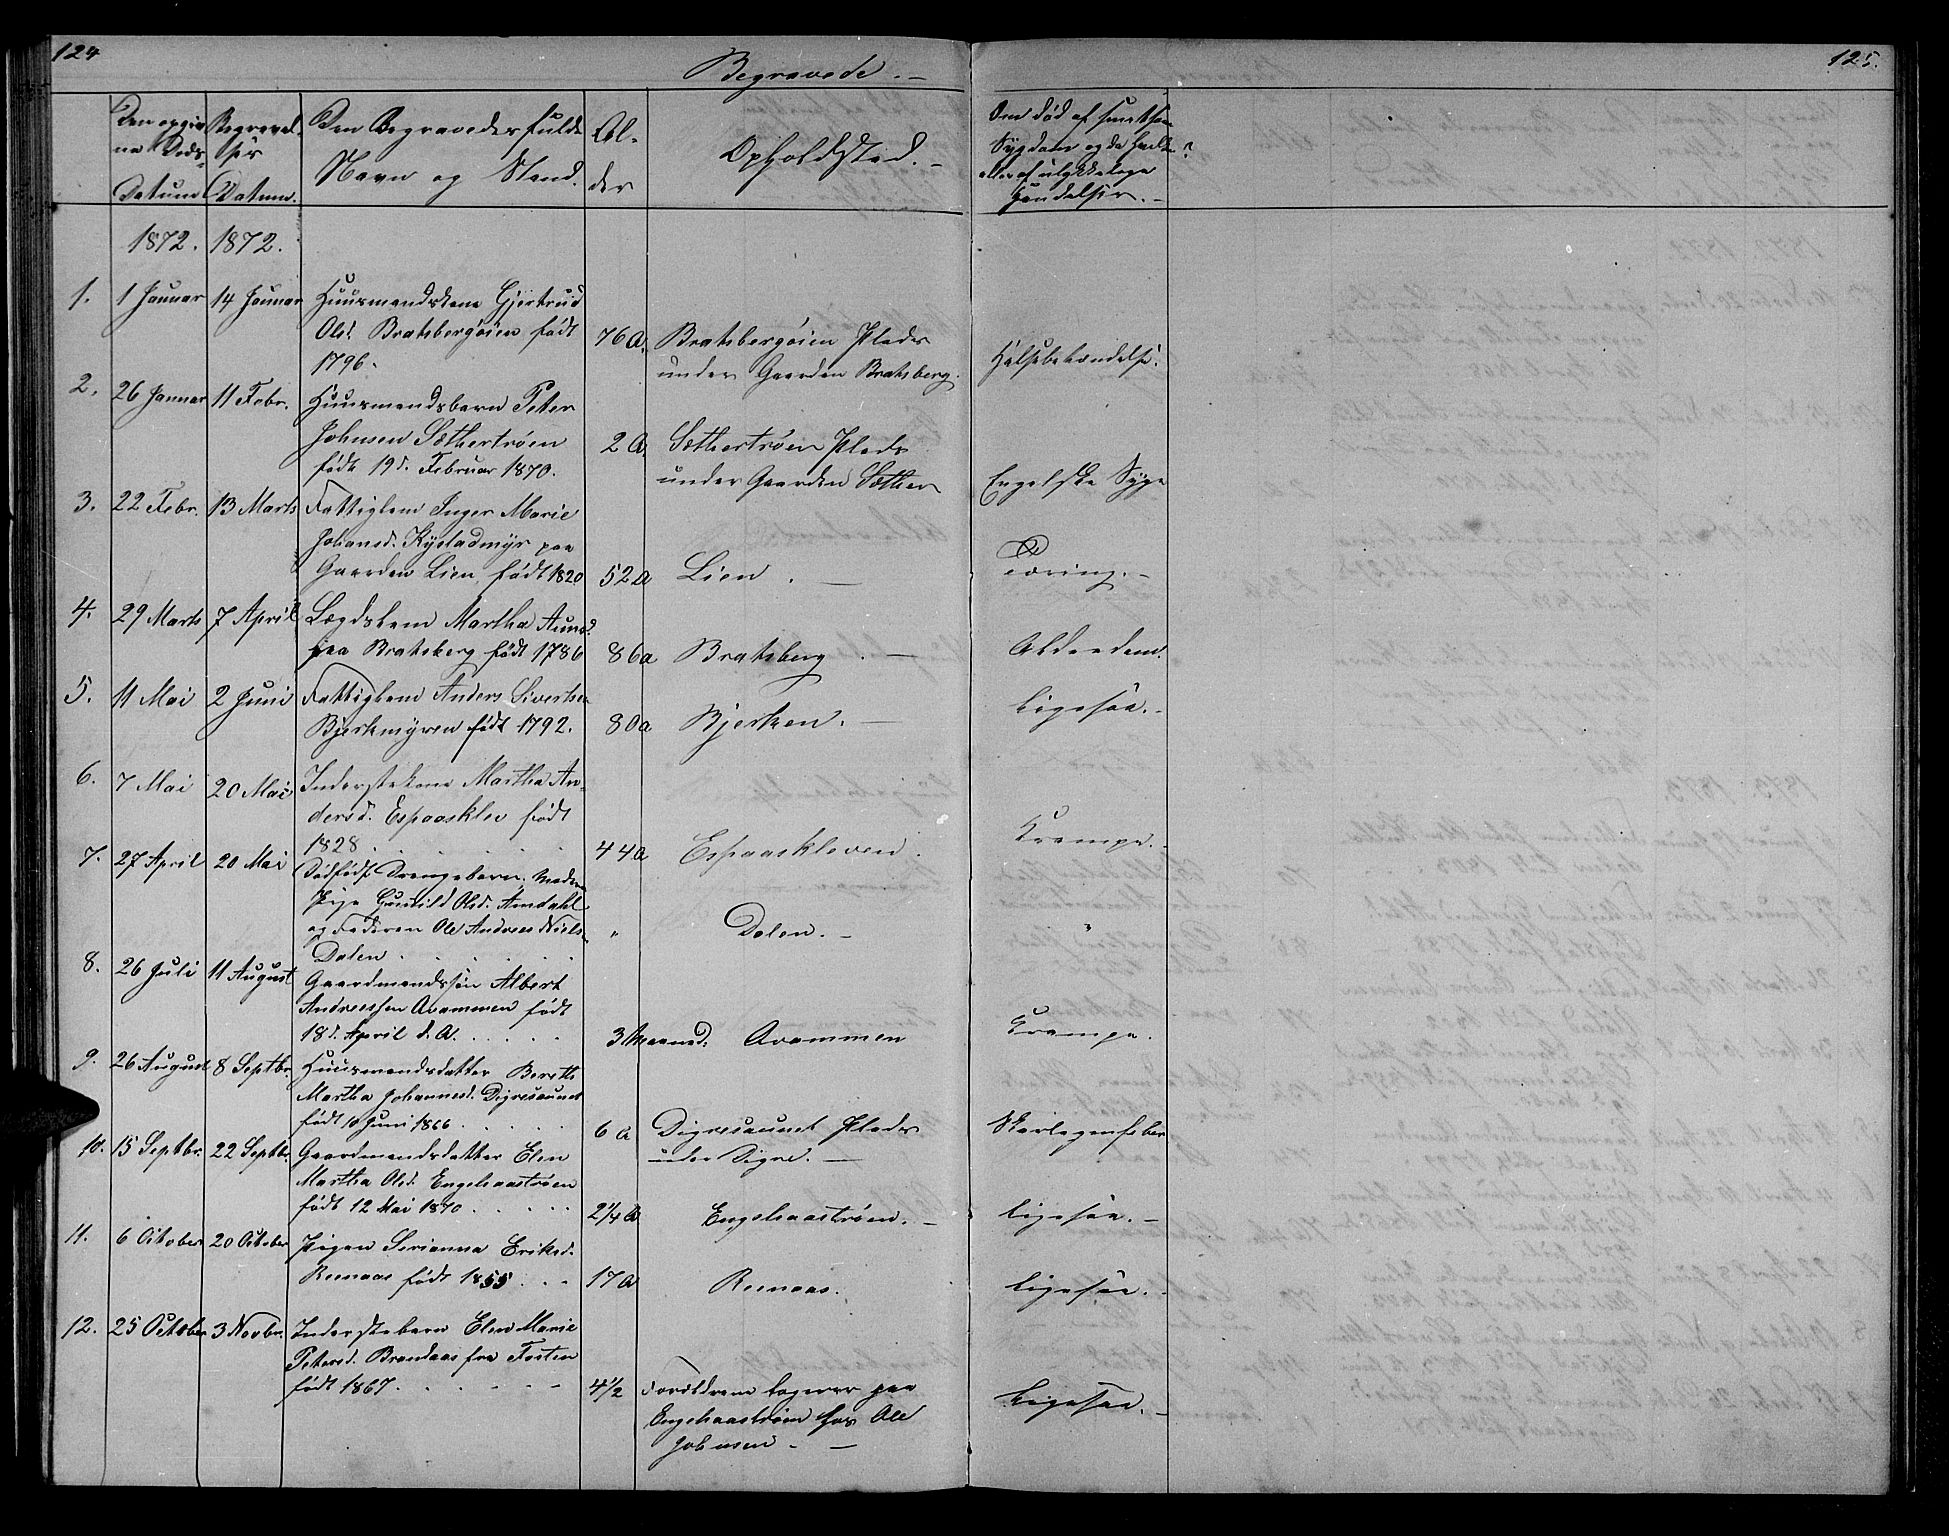 124
Begravede. —
125.
Den opgiv
ne Døds-
Datum
Begravel
ses
Datum.
Den Begravedes fulde
Navn og Stand.
Al-
der
Opholdsted. —
Om død af smitsom
Sygdom og da hvilken?
eller af ulykkelige
Hændelser. —
1872. 1872.
1. 1 Januar 14 Januar Huusmandskone Gjertrud
Olsd. Bratsbergøien født
1796.
76 A. Bratsbergøien Plads
under Gaarden Bratsberg.
Halsebetændelse.
2. 26 Januar 11 Febr. Huusmandsbarn Peter
Johnsen Sæthertrøen
født 19d. Februar 1870.
2 A Sæthertrøen Plads
under Gaarden Sæther
Engelske Syge
3. 22 Febr. 13 Marts Fattiglem Inger Marie
Johansd. Kystadmyr paa
Gaarden Lien, født 1820
52 a Lien. —
Tæring. —
4. 29 Marts 7 April Lægdslem Martha Aunsd.
paa Bratsberg født 1786
86 a Bratsberg. —
Alderdom.
5. 11 Mai 2 Juni Fattiglem Anders Sivertsen
Bjerkmyren født 1792.
80 a Bjerken. —
Ligesaa. —
6. 7 Mai 20 Mai Inderstekone Martha An-
dersd. Espaasklev født
1828 . . . . .
44 a Espaaskleven.
Krampe. —
7. 27 April 20 Mai Dødfødt Drengebarn. Moder
Pige Gunild Olsd. Amdahl
og Faderen Ole Andreas Niels
Dalen . . . . .
" Dalen. — "
8. 26 Juli 11 August Gaardmandssøn Albert
Andreassen Arammen født
18d. April d. A. . . . .
3 Maaned. Arammen
Krampe.
9. 26 August 8 Septbr. Huusmandsdatter Bereth
Martha Johannesd. Digresaunet
født 10 Juni 1866 . . . . .
6 a Digresaunet Plads
under Digre. —
Skarlagensfeber
10. 15 Septbr. 22 Septbr. Gaardmandsdatter Elen
Martha Olsd. Engelsaastrøen
født 12 Mai 1870 . . . . .
2 1/4 A Engelsaastrøen. —
Ligesaa. —
11. 6 October 20 October Pigen Serianna Eriksd.
Reenaas født 1855 . . .
17 A Reenaas.
Ligesaa. —
12. 25 October 3 Novbr. Inderstebarn Elen Marie
Petersd. Brandaas fra Fosten
født 1867 . . . . . —
4 1/2 Forældrene logerer paa
Engelsaastrøen hos Ole
Johnsen. —
Ligesaa. —